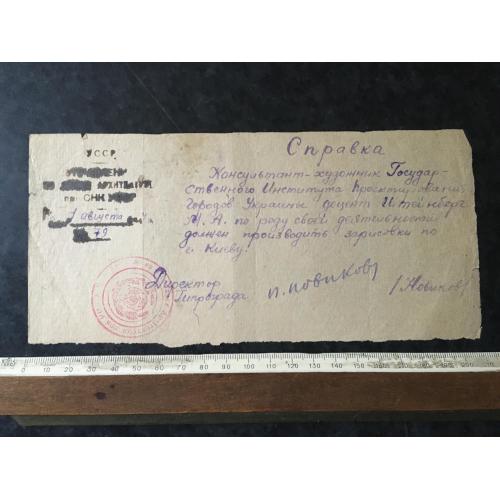 УССР
УПРАВЛЕНИЕ
ПО ДЕЛАМ АРХИТЕКТУРЫ
при СНК УССР
1 августа
79
Справка
Консультант-художник Государ-
ственного Института Проектирования
Городов Украины доцент Штейнберг
М. А. по роду своей деятельности
должен производить зарисовки по
г. Киеву.
Директор
Гипрограда
П. Новиков
/Новиков/
0 10 20 30 40 50 60 70 80 90 100 110 120 130 140 150 160 170 180 190 200